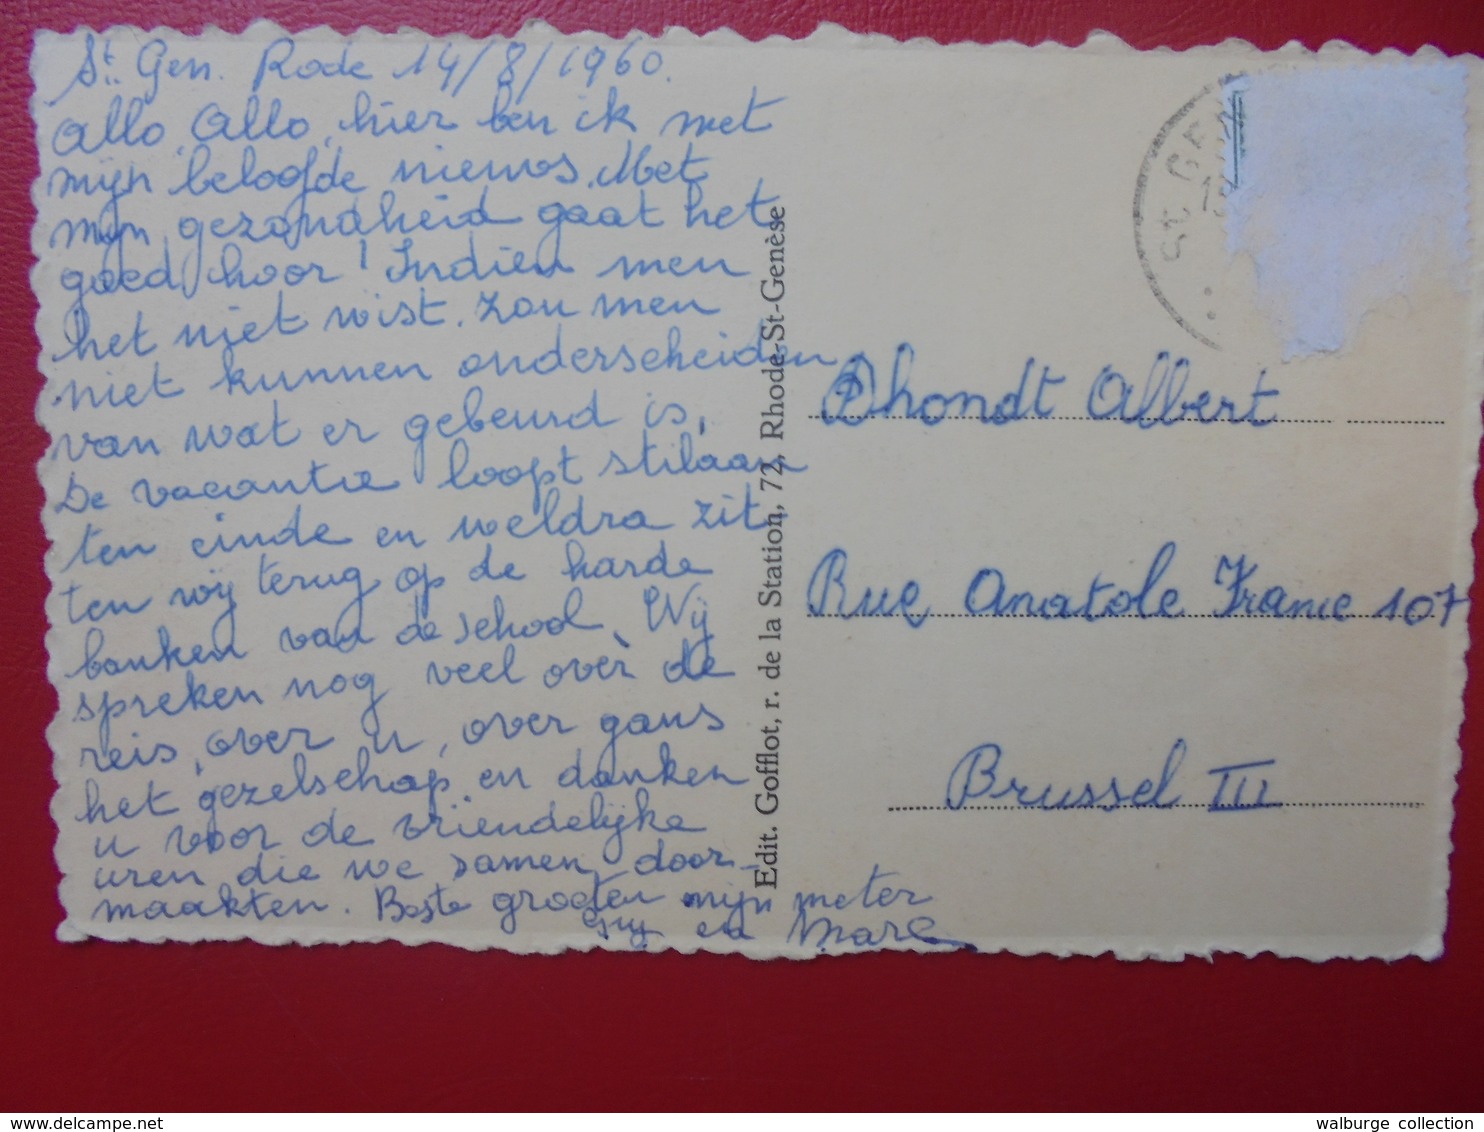 St. Gen. Rode 14/8/1960.
Allo, Allo, hier ben ik met
mijn beloofde nieuws. Met
mijn gezondheid gaat het
goed hoor! Indien men
het niet wist. Zou men
niet kunnen onderscheiden
van wat er gebeurd is.
De vacantie loopt stilaan
ten einde en weldra zit
ten wij terug op de harde
banken van de school. Wij
spreken nog veel over de
reis, over u, over gans
het gezelschap en danken
u voor de vriendelijke
uren die we samen door-
maakten. Beste groeten mijn meter
Guy en Marc
Edit. Gofflot, r. de la Station, 72, Rhode-St-Genèse
ST. GEN
19
Dhondt Albert
Rue Anatole France 107
Brussel III
delcampe.net
walburge collection